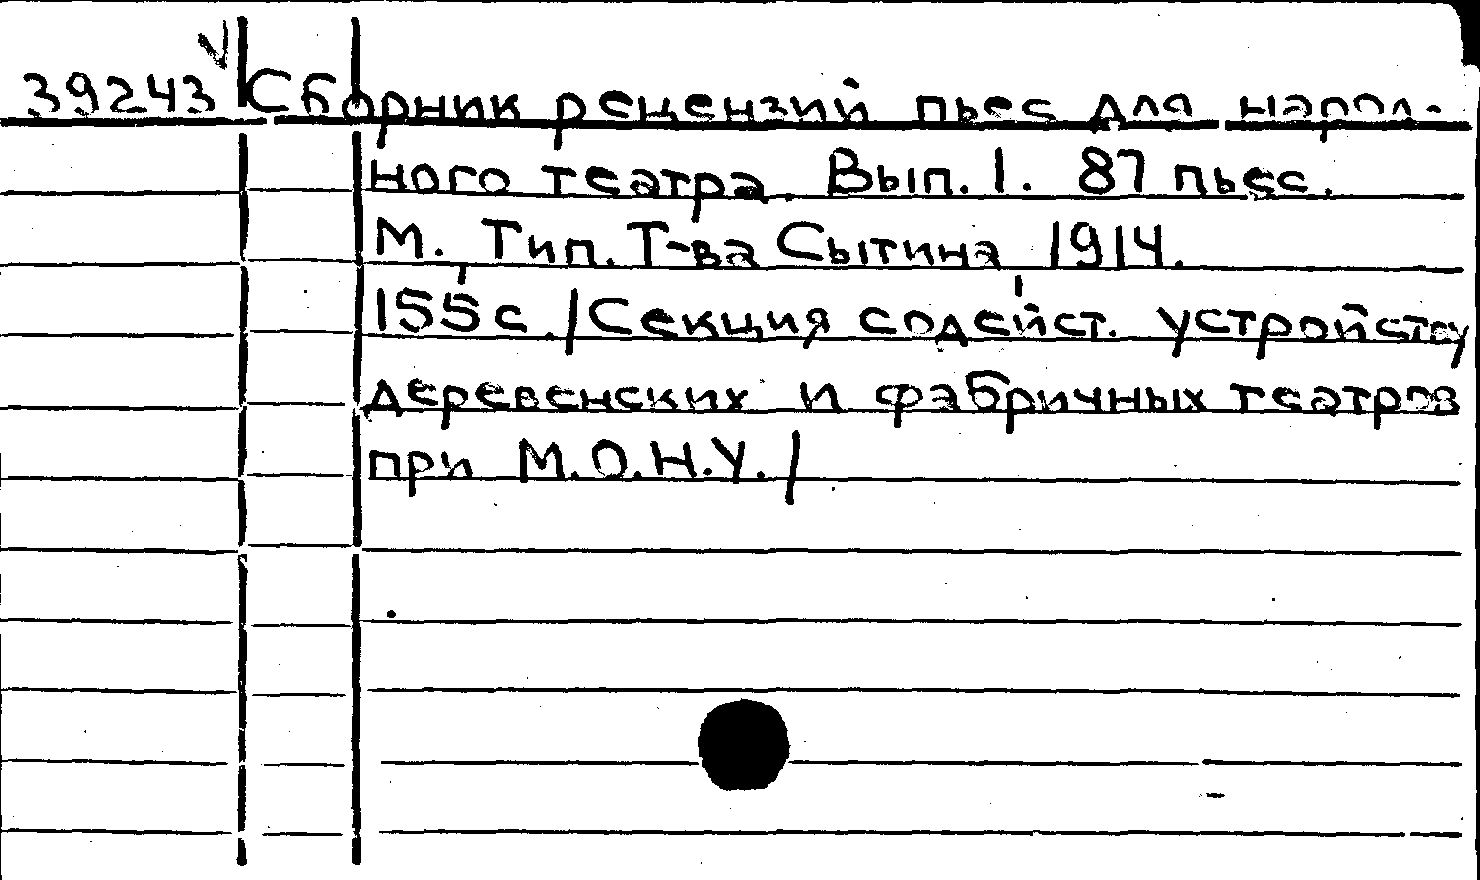 39243 Сборник рецензий пьес для народ-
ного театра. Вып. 1. 87 пьес.
М., Тип. Т-ва Сытина, 1914.
155 с. /Секция содейст. устройству
деревенских и фабричных театров
при М.О.Н.У./